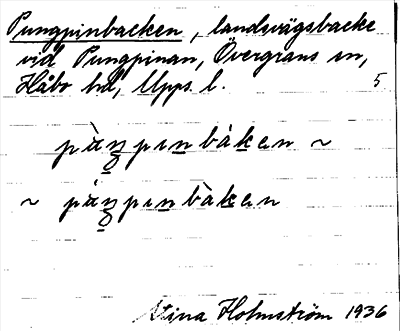 Pungpinbacken, landsvägsbacke
vid Pungpinan, Övergrans sn,
Håbo hd, Upps. l. 5
pàŋpɪnbàken ~
~ páŋpɪnbàken
Stina Holmström 1936